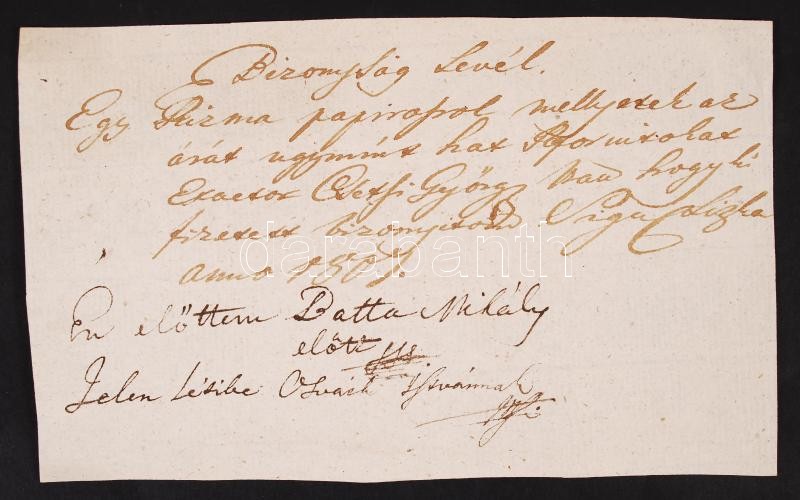 Bizonyság Levél.
Egy Rizma papirosrol mellyeknek az
árát ugymint hat forintokat
Exactor György Uram hogy ki
fizetett bizonyitom Sign Liszka
anno 1807.
Én előttem Batta Mihály
előtt
Jelen létibe Osváth Istvánnak
darabanth